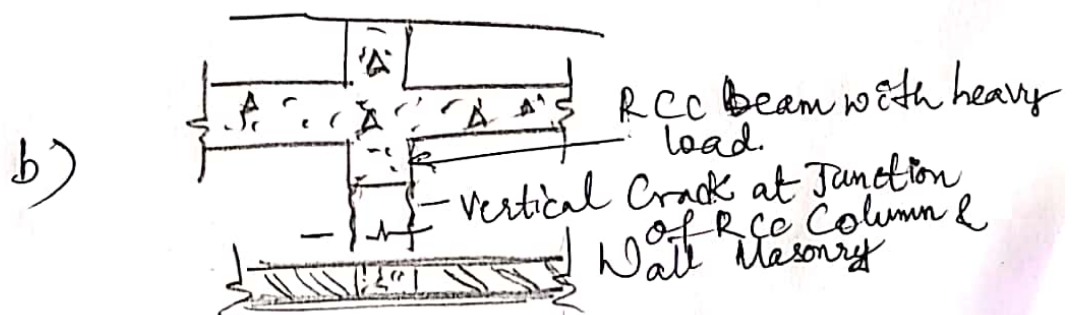 b)
RCC beam with heavy
load.
Vertical Crack at Junction
of RCC Column &
Wall Masonry